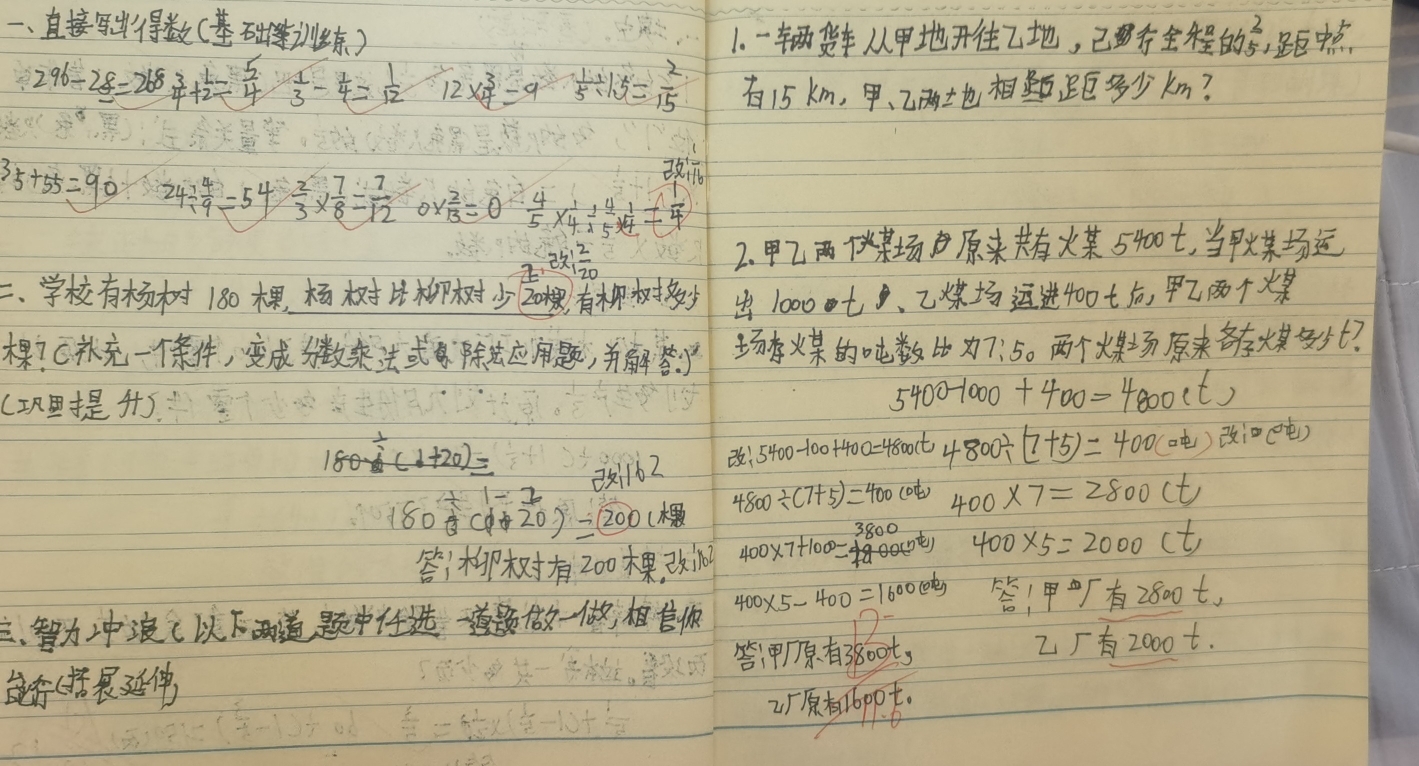 一、直接写出得数(基础练训练)
296-28=268 3/4+1/2=5/4 1/3-1/4=1/12 12×3/4=9 1/5÷1.5=2/15
35+55=90 24÷4/9=54 2/3×7/8=7/12 0×2/13=0 4/5×1/4÷4/5×1/4=1/4
改:1/16
改:2/20
二、学校有杨树180棵,杨树比柳树少20棵,有柳树多少
棵?(补充一个条件,变成分数乘法或除法应用题,并解答。)
(巩固提升)
180÷(1+20)=
改:162
180÷(1-20)=200(棵
答:柳树有200棵。改:162
三、智力冲浪(以下两道题中任选一道题做一做,相信你
能行(拓展延伸)
1.一辆货车从甲地开往乙地,已行全程的2/5,距中点
有15km,甲、乙两地相距多少km?
2.甲乙两个煤场原来共有火煤5400t,当甲火煤场运
出1000t、乙煤场运进400t后,甲乙两个火煤
场存火煤的吨数比为7:5。两个火煤场原来各存火煤多少t?
5400-1000+400=4800(t)
4800÷(7+5)=400(吨) 改:(吨)
400×7=2800(t)
400×5=2000(t)
答:甲厂有2800t,
乙厂有2000t.
改:5400-100+400=4800(t
4800÷(7+5)=400(吨)
400×7+100=3800(吨)
400×5-400=1600(吨)
答:甲厂原有3800t,
乙厂原有1600t。
11.6